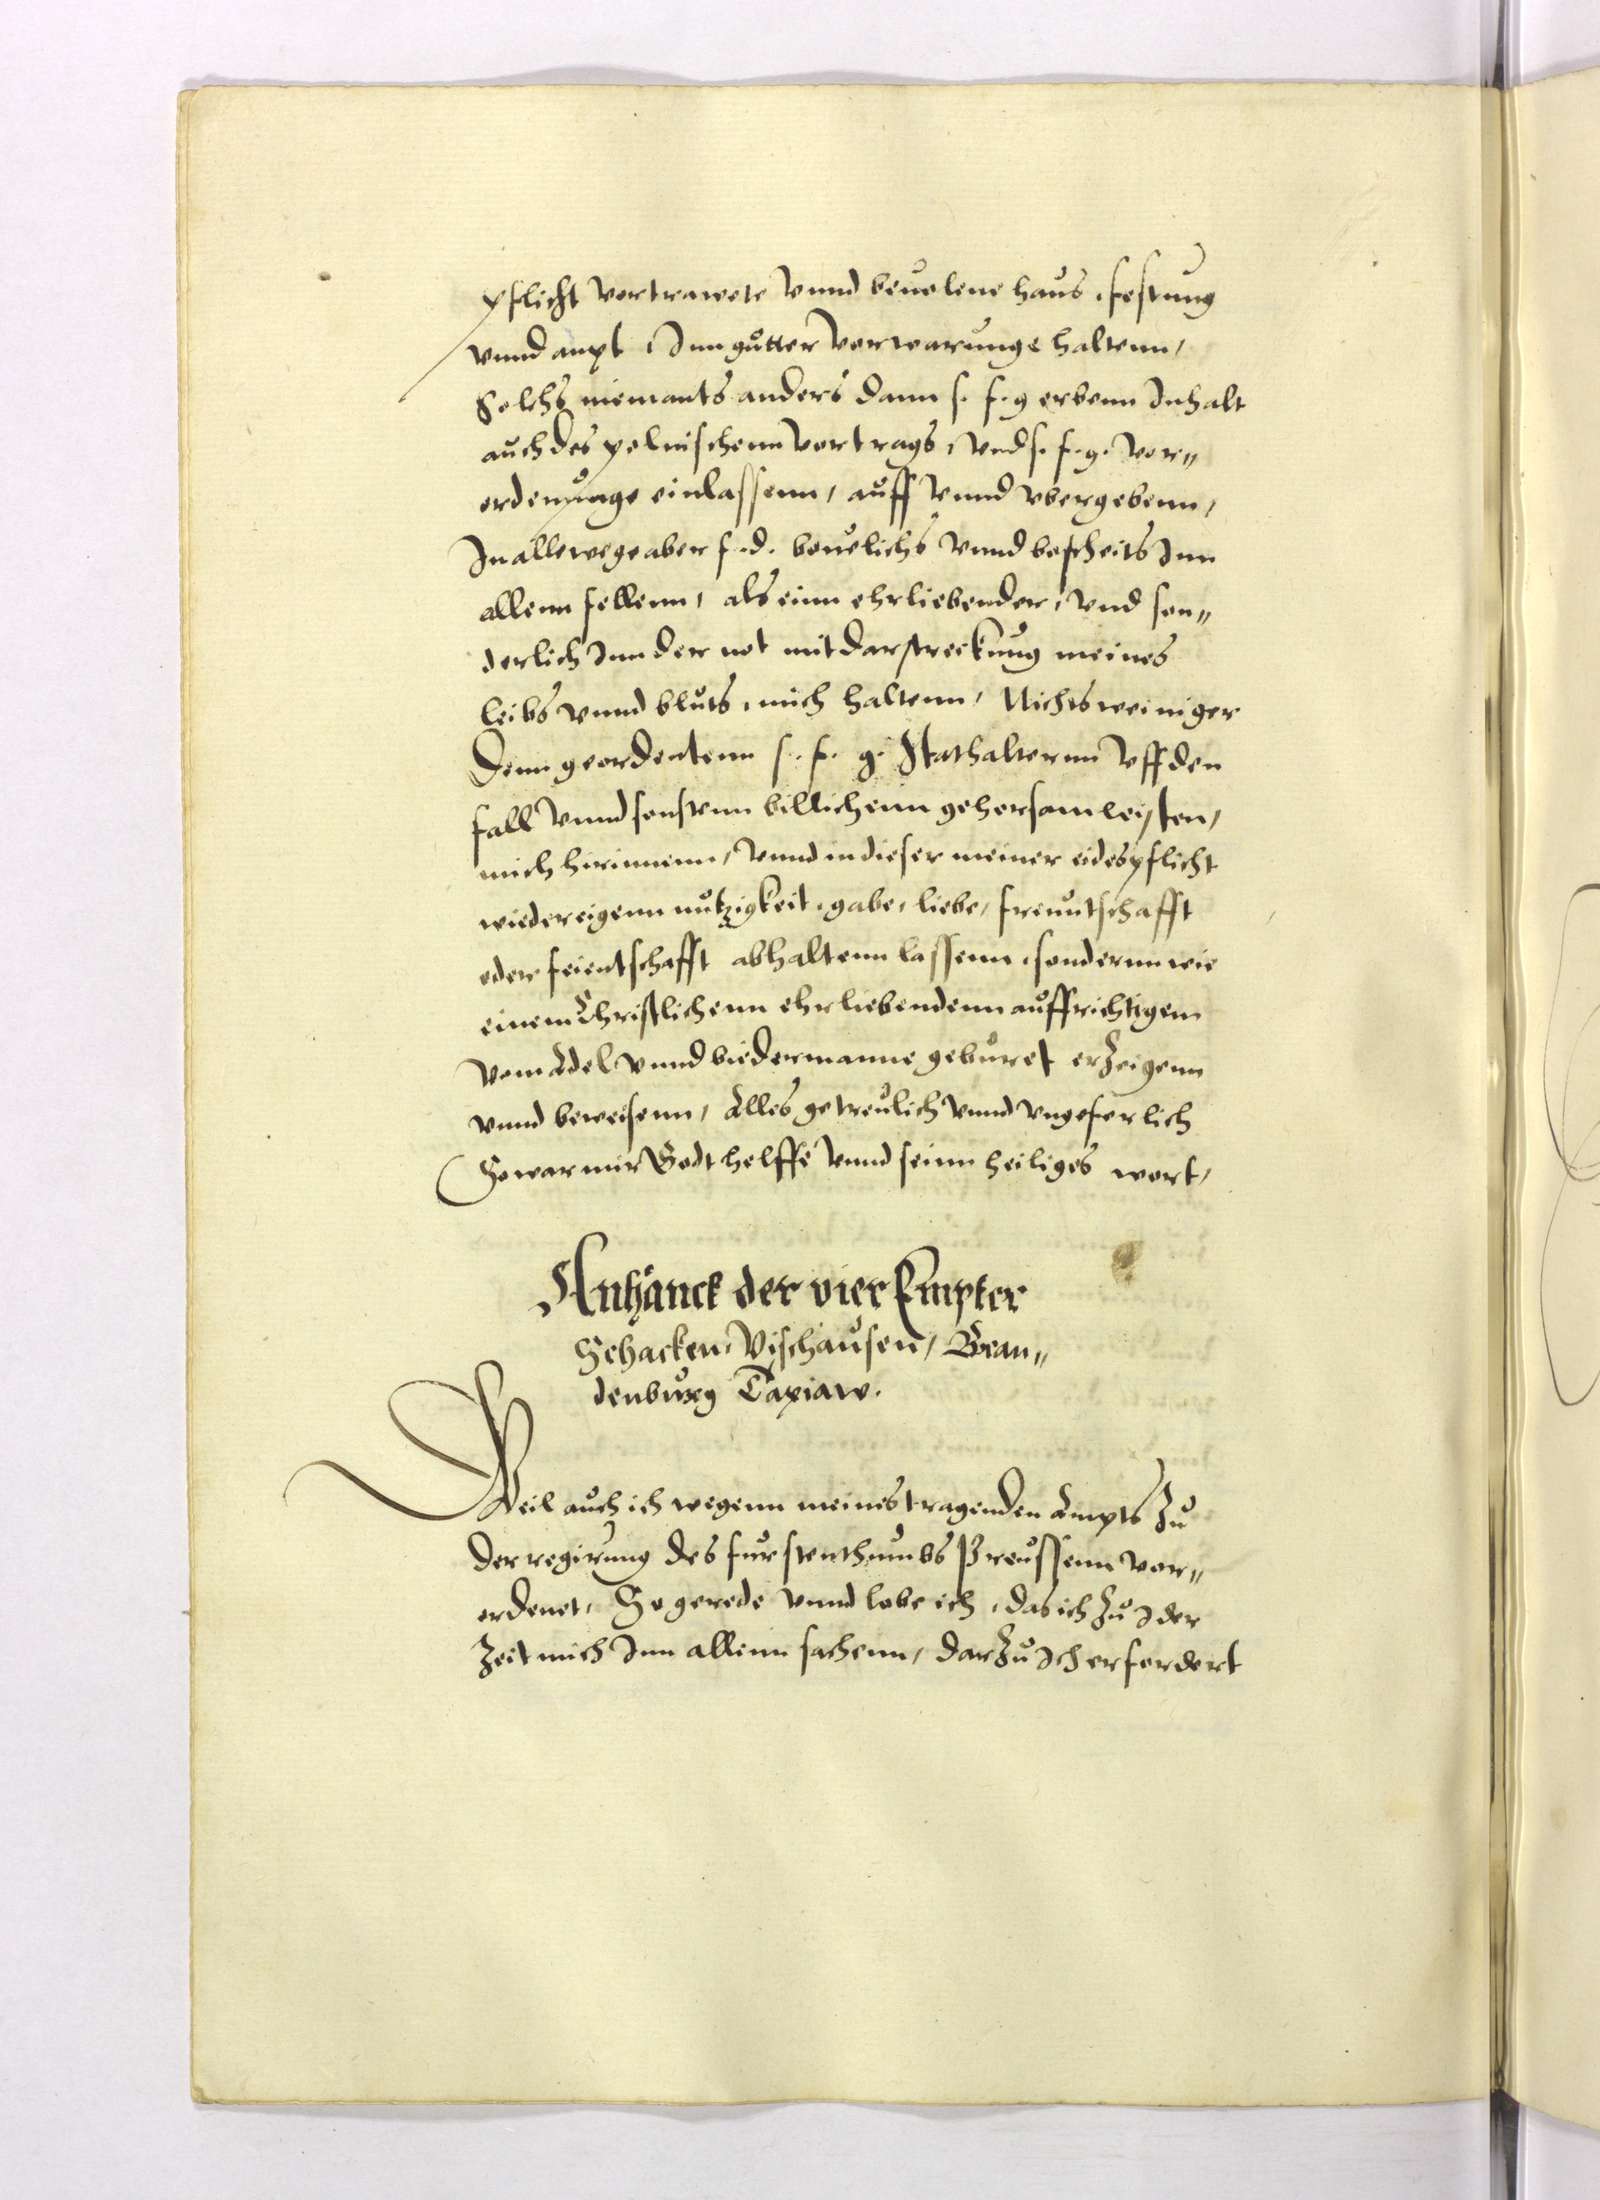 pflicht vertrawete vnnd beuolene haus, festung
vnnd ampt, Inn gutter verwarunge haltenn,
Solchs niemants anders dann s. f. g erbenn Inhalt
auch des polnischenn vertrags, vnd s. f. g. ver„
ordenunge einlassenn, auff vnnd vbergebenn,
In allewege aber f. d. beuelichs vnnd bescheits Inn
allenn fellenn, als einn ehrliebender, vnd son„
derlich Inn der not mit darstreckung meines
leibs vnnd bluts, mich haltenn, Nichts weiniger
Denn geordentenn s. f. g. Stathalternn vff den
fall vnnd sonstenn billichenn gehorsam leisten,
mich hirinnenn, vnnd in dieser meiner eidespflicht
wieder eigenn nutzigkeit, gabe, liebe, freuntschafft
oder feientschafft abhaltenn lassenn, sondernn wie
einem Christlichenn ehrliebendenn auffrichtigem
vom Adel vnnd biedermanne geburet erzeigenn
vnnd beweisenn, Alles getreulich vnnd vngeferlich
So war mir Godt helffe vnnd seinn heiliges wort,
Anhanck der vier Empter
Schacken, Vischausen, Bran„
denburg Tapiaw.
Weil auch ich wegenn meines tragenden Ampts zu
der regirung des furstenthumbs Preussenn ver„
ordenet, So gerede vnnd lobe ich, das ich zu Jder
Zeit mich Inn allenn sachenn, darzu Ich erfordert